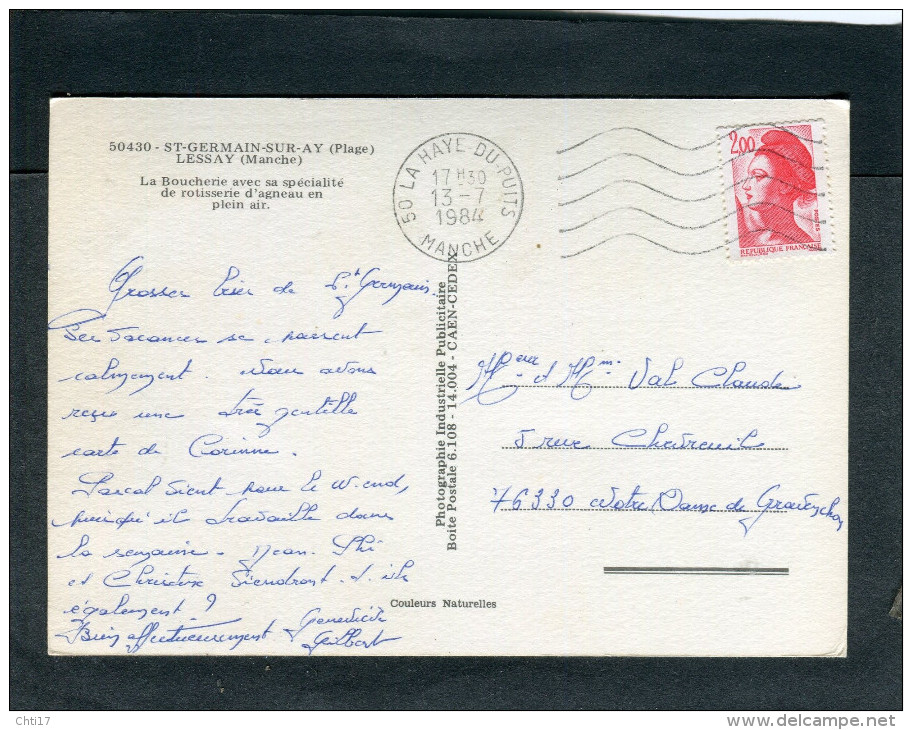 50430 - ST-GERMAIN-SUR-AY (Plage)
LESSAY (Manche)
La Boucherie avec sa spécialité
de rotisserie d'agneau en
plein air.
50 LA HAYE-DU-PUITS
17 H 30
13 - 7
1984
MANCHE
2,00
REPUBLIQUE FRANÇAISE
Grosses bises de St Germain.
Les vacances se passent
calmement. Nous avons
reçu une très gentille
carte de Corinne.
Pascal vient pour le W.end,
puisqu'il travaille dans
la semaine. Jean-Phi
et Christine viendront-ils
également ?
Bien affectueusement Geneviève
Gilbert
Photographie Industrielle Publicitaire
Boite Postale 6.108 - 14.004 - CAEN-CEDEX
et Mme Val Claude
5 rue Chevreuil
76330 Notre Dame de Gravenchon
Couleurs Naturelles
Chti17
delcampe.net